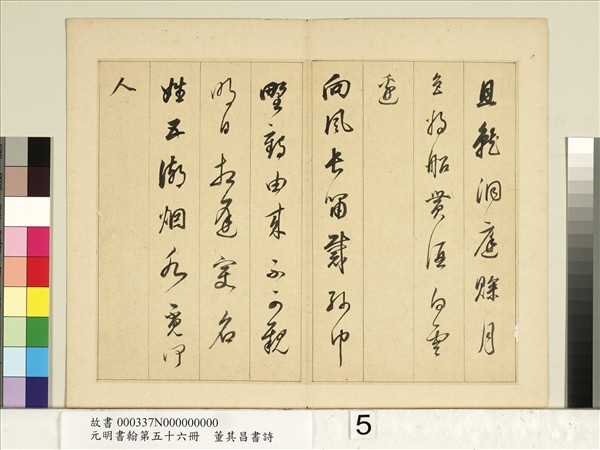 且就洞庭賒月
色將船買酒白雲
邊
向風長嘯戴紗巾
野鶴由來不可親
明日相逢變名
姓五湖烟水覓何
人
故書 000337N000000000
元明書翰第五十六冊 董其昌書詩
5